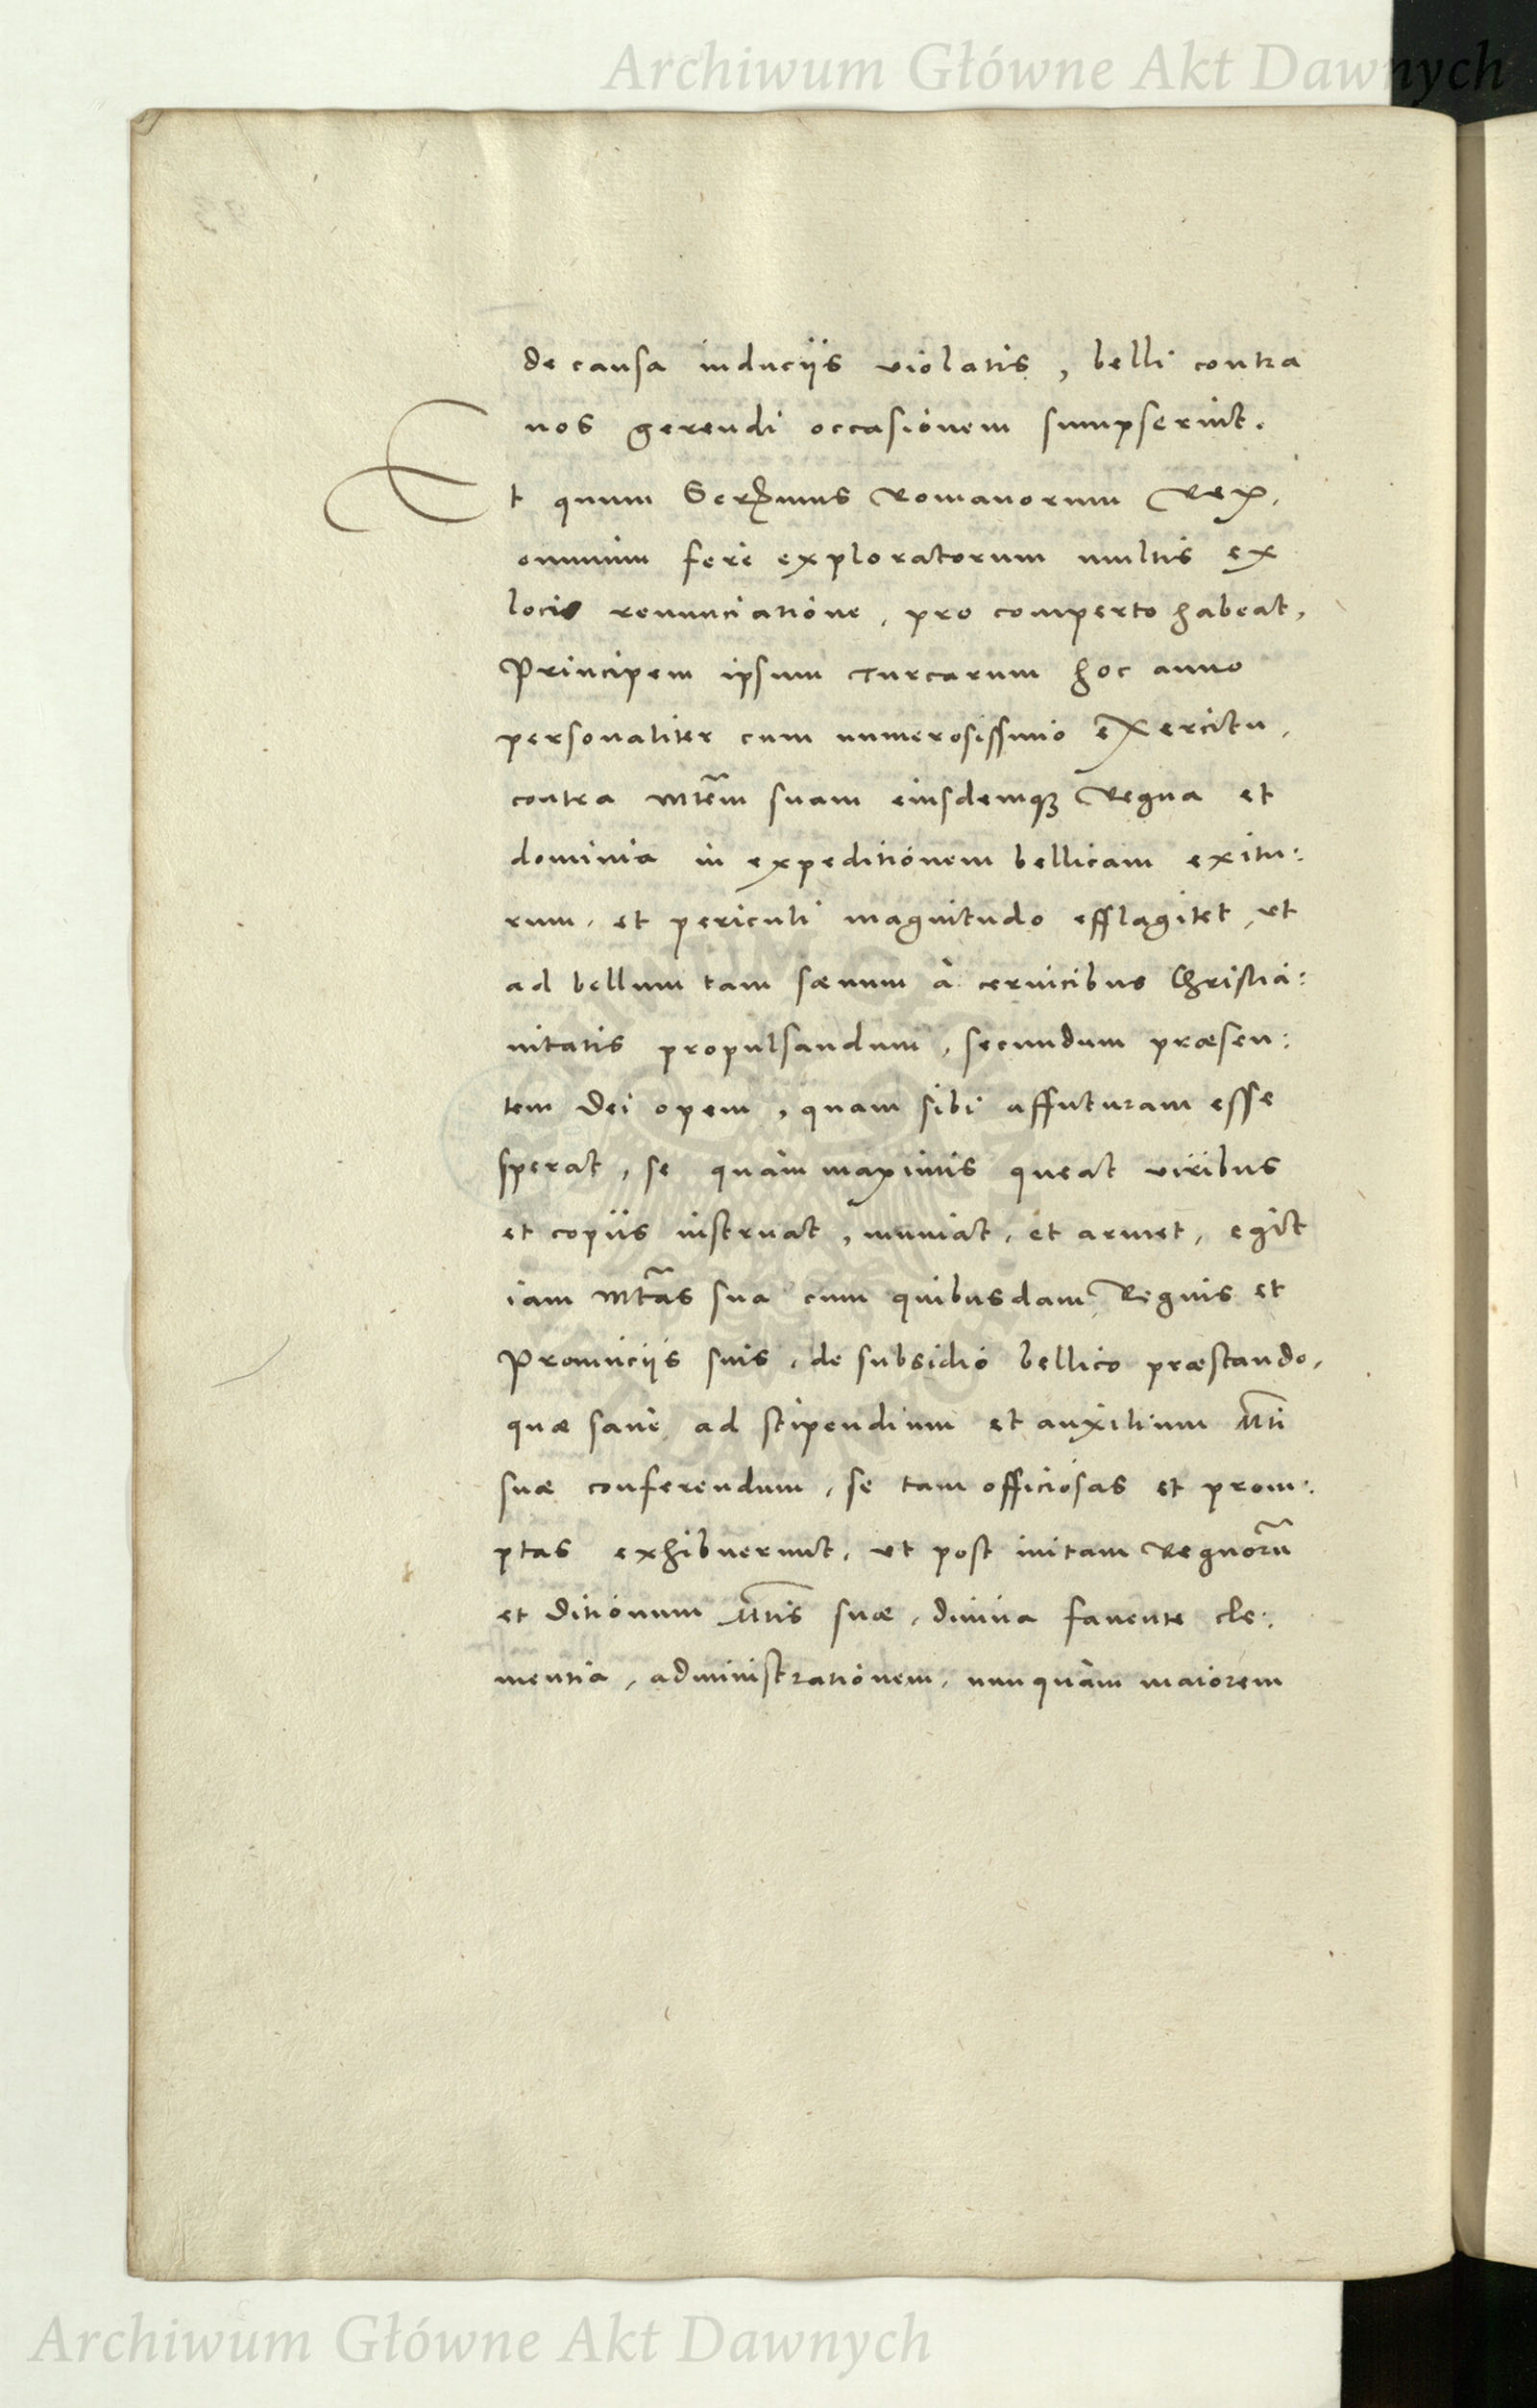 Archiwum Główne Akt Dawnych
de causa induciis violatis, belli contra
nos gerendi occasionem sumpserint.
Et quum Ser.mus Romanorum Rex,
omnium fere exploratorum multis ex
locis renunciatione, pro comperto habeat,
Principem ipsum Turcarum hoc anno
personaliter cum numerosissimo exercitu,
contra Mtem suam eiusdemq3 Regna et
dominia in expeditionem bellicam exitu:
rum, et periculi magnitudo efflagitet, ut
ad bellum tam sævum à cervicibus Christia:
nitatis propulsandum, secundum præsen:
tem Dei opem, quam sibi affuturam esse
sperat, se quàm maximis queat viribus
et copiis instruat, muniat, et armet, egit
iam Mtas sua cum quibusdam Regnis et
Provinciis suis, de subsidio bellico præstando,
quæ sanè ad stipendium et auxilium Mti
suæ conferendum, se tam officiosas et prom:
ptas exhibuerunt, ut post initam Regnorū
et ditionum Mtis suæ, divina favente cle:
mentia, administrationem, nunquàm maiorem
Archiwum Główne Akt Dawnych